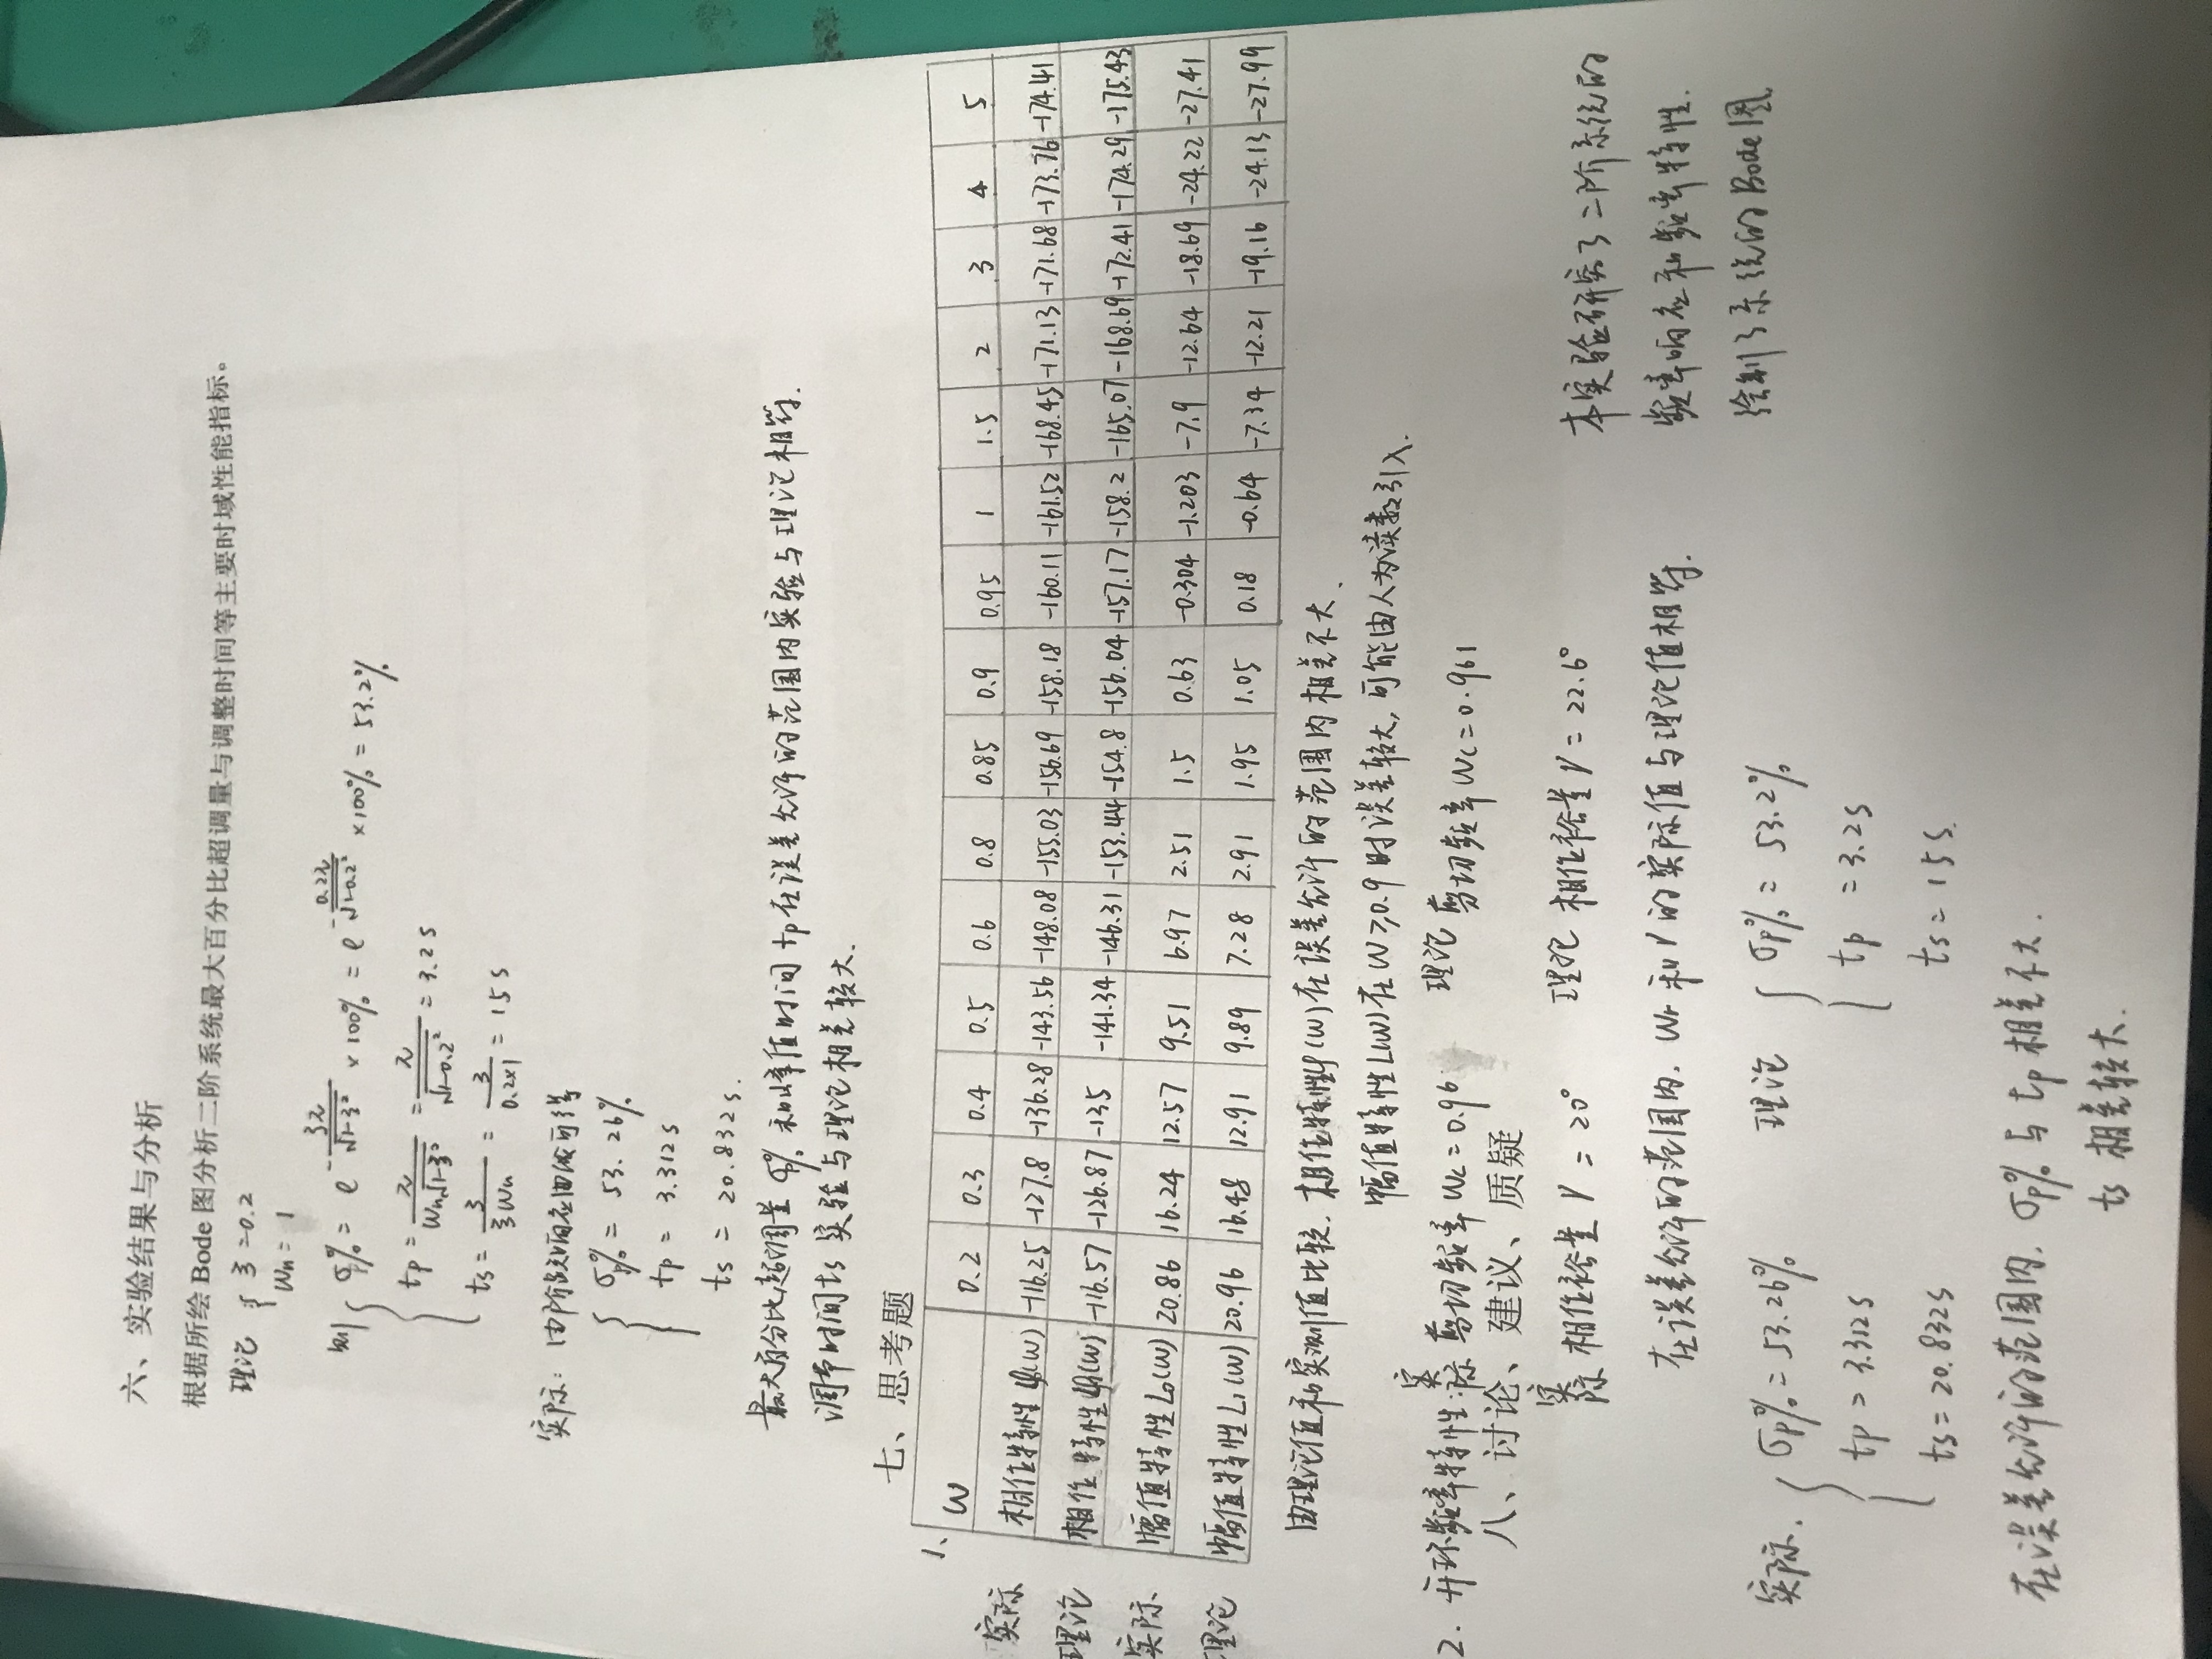 六、实验结果与分析
根据所绘 Bode 图分析二阶系统最大百分比超调量与调整时间等主要时域性能指标。
理论 { ξ=0.2
ωn = 1
则 { σp% = e^(-ξπ/√(1-ξ²)) ×100% = e^(-0.2π/√(1-0.2²)) ×100% = 53.2%
tp = π/(ωn√(1-ξ²)) = π/√(1-0.2²) = 3.2s
ts = 3/(ξωn) = 3/(0.2×1) = 15s
实际: 由阶跃响应曲线可得
{ σp% = 53.26%
tp = 3.312s
ts = 20.832s.
最大百分比超调量 σp% 和峰值时间 tp 在误差允许的范围内实验与理论相符.
调节时间ts 实验与理论相差较大.
七、思考题
1、 ω 0.2 0.3 0.4 0.5 0.6 0.8 0.85 0.9 0.95 1 1.5 2 3 4 5
实际 相位特性 φ0(ω) -116.25 -127.8 -136.28 -143.56 -148.08 -155.03 -156.69 -158.18 -160.11 -161.52 -168.45 -171.13 -171.68 -173.76 -174.41
理论 相位特性 φ1(ω) -116.57 -126.87 -135 -141.34 -146.31 -153.44 -154.8 -156.04 -157.17 -158.2 -165.07 -168.69 -172.41 -174.29 -175.43
实际 幅值特性 L0(ω) 20.86 16.24 12.57 9.51 6.97 2.51 1.5 0.63 -0.304 -1.203 -7.9 -12.64 -18.69 -24.22 -27.41
理论 幅值特性 L1(ω) 20.96 16.48 12.91 9.89 7.28 2.91 1.95 1.05 0.18 -0.64 -7.34 -12.21 -19.16 -24.13 -27.99
由理论值和实测值比较. 相位特性φ(ω)在误差允许的范围内相差不大.
幅值特性L(ω)在ω≥0.9时误差较大, 可能由人为读数引入.
2. 开环频率特性: 实际 剪切频率 ωc = 0.96 理论 剪切频率 ωc = 0.961
八、讨论、建议、质疑
实际 相位裕量 γ = 20° 理论 相位裕量 γ = 22.6°
在误差允许的范围内. ωr 和 γ 的实际值与理论值相符.
本实验研究了二阶系统的
频率响应和频率特性.
绘制了系统的Bode图.
实际. { σp% = 53.26% 理论 { σp% = 53.2%
tp = 3.312s tp = 3.2s
ts = 20.832s ts = 15s.
在误差允许的范围内. σp% 与 tp 相差不大.
ts 相差较大.